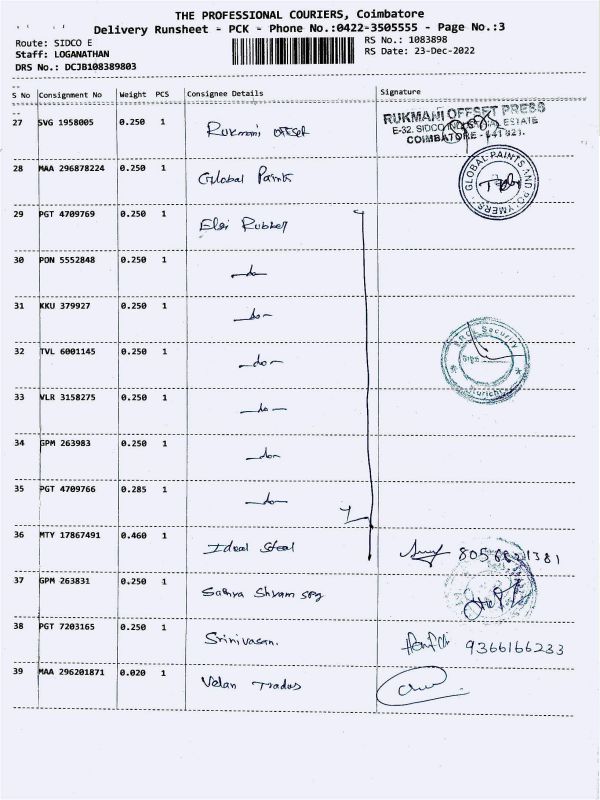 THE PROFESSIONAL COURIERS, Coimbatore
Delivery Runsheet - PCK - Phone No.:0422-3505555 - Page No.:3
Route: SIDCO E RS No.: 1083898
Staff: LOGANATHAN RS Date: 23-Dec-2022
DRS No.: DCJB108389803
S No Consignment No Weight PCS Consignee Details Signature
27 SVG 1958005 0.250 1 Rukmani offset RUKMANI OFFSET PRESS
E-32, SIDCO INDUSTRIAL ESTATE
COIMBATORE - 641 021.
28 MAA 296878224 0.250 1 Global Paints GLOBAL PAINTS AND POLYMERS
29 PGT 4709769 0.250 1 Elgi Rubber
30 PON 5552848 0.250 1 -do-
31 KKU 379927 0.250 1 -do-
32 TVL 6001145 0.250 1 -do- Security
Sign
33 VLR 3158275 0.250 1 -do- Kurichi
34 GPM 263983 0.250 1 -do-
35 PGT 4709766 0.285 1 -do-
36 MTY 17867491 0.460 1 Ideal Steel 8056621381
37 GPM 263831 0.250 1 Sathya Shyam spg
38 PGT 7203165 0.250 1 Srinivasan. 9366166233
39 MAA 296201871 0.020 1 Velan Trades